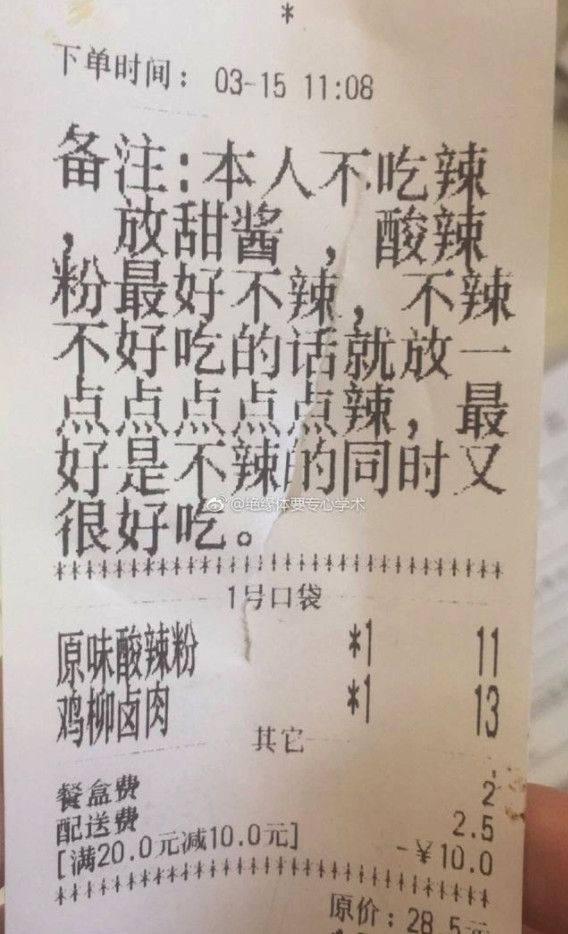 *
下单时间: 03-15 11:08
备注:本人不吃辣
,放甜酱,酸辣
粉最好不辣,不辣
不好吃的话就放一
点点点点点辣,最
好是不辣的同时又
很好吃。
@绝缘体要专心学术
********************************
1号口袋
原味酸辣粉 *1 11
鸡柳卤肉 *1 13
其它
餐盒费 2
配送费 2.5
[满20.0元减10.0元] -¥10.0
********************************
原价:28.5元